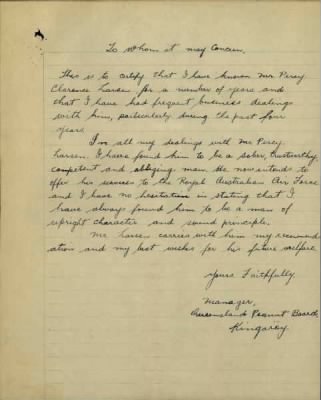 To Whom it may Concern.
This is to certify that I have known Mr. Percy
Clarence Larsen for a number of years and
that I have had frequent business dealings
with him, particularly during the past four
years
In all my dealings with Mr Percy
Larsen, I have found him to be a sober, trustworthy
competent and obliging man. He now intends to
offer his services to the Royal Australian Air Force
and I have no hesitation in stating that I
have always found him to be a man of
upright character and sound principle.
Mr Larsen carries with him my recommend
ation and my best wishes for his future welfare
Yours Faithfully
Manager,
Queensland Peanut Board,
Kingaroy